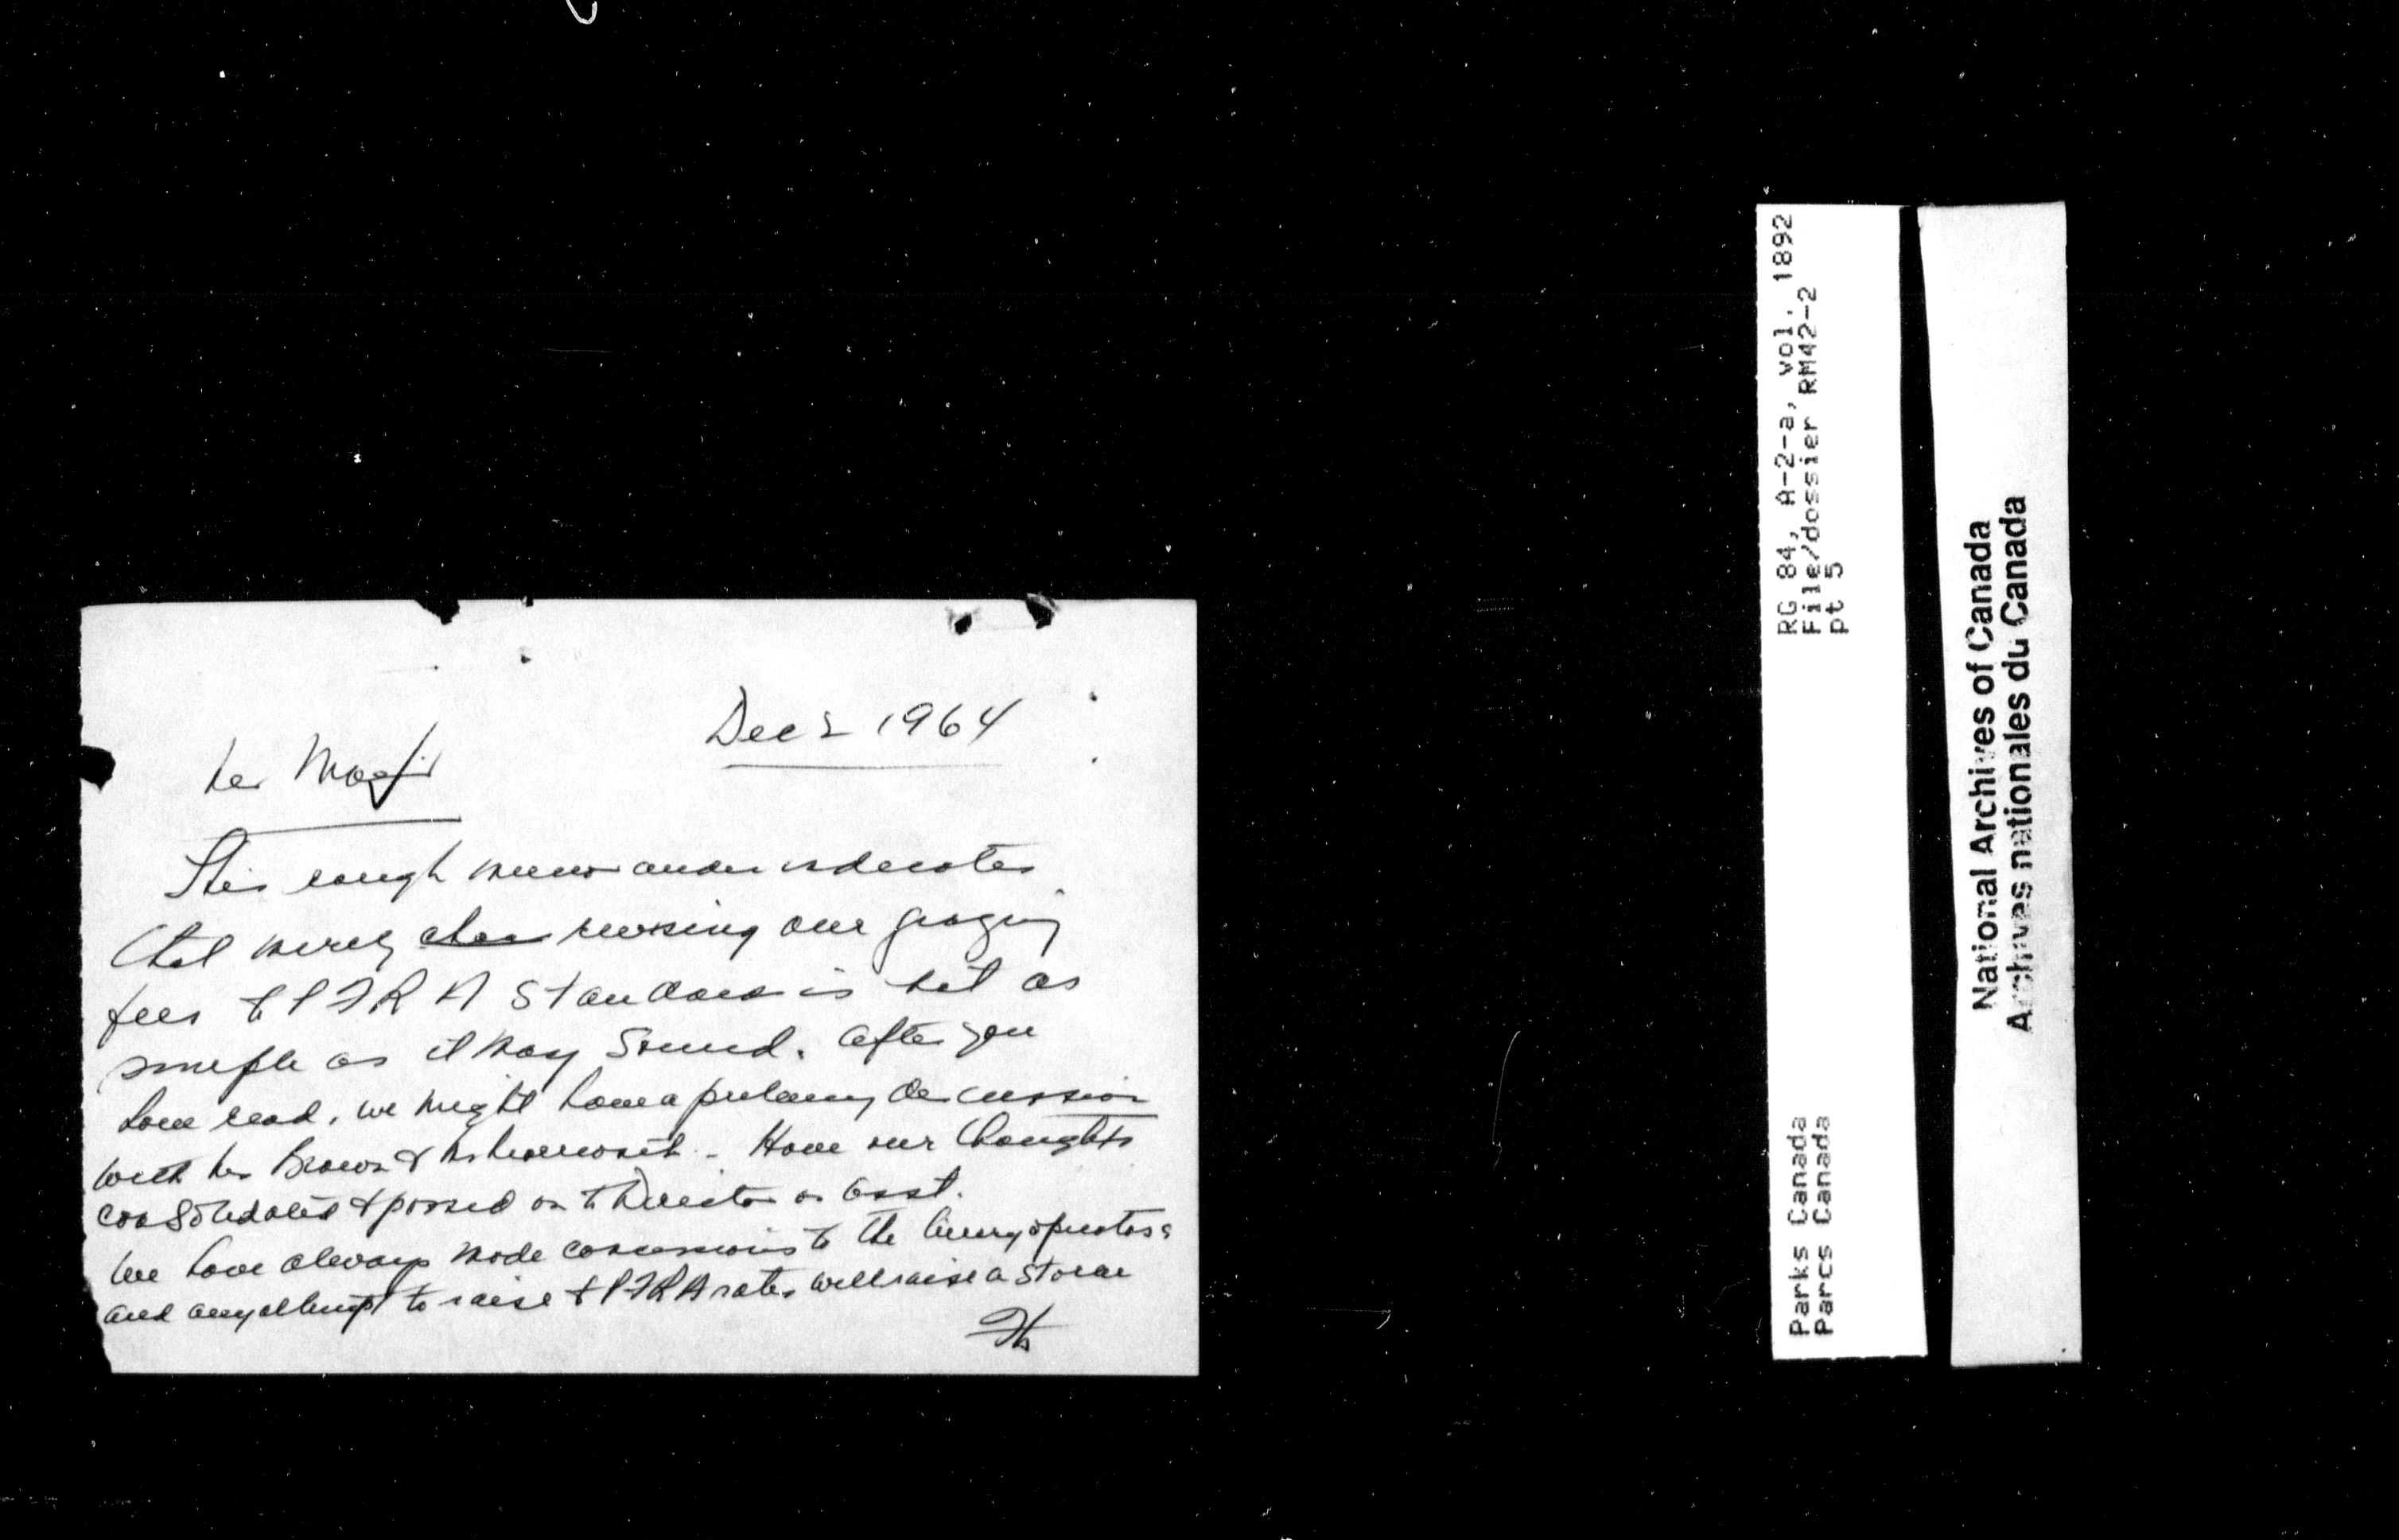 Dec 2 1964
Mr
This rough memorandum indicates
that merely revising our grazing
fees to PFRA standards is not as
simple as it may sound. After you
have read, we might have a discussion
with Mr Brown & - Have our thoughts
consolidated & passed on to Director or Asst.
We have always made concessions to the livery operators
and any attempt to raise to PFRA rates will raise a storm
RG 84, A-2-a, vol. 1892
File/dossier RM42-2
pt 5
Parks Canada
Parcs Canada
National Archives of Canada
Archives nationales du Canada